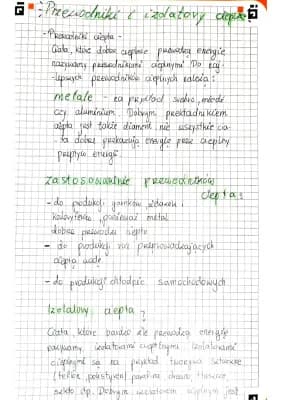 Przewodniki i izolatory ciepła
- Przewodniki ciepła -
Ciała, które dobrze cieplnie przewodzą energię
nazywamy przewodnikami cieplnymi. Do naj-
-lepszych przewodników cieplnych należą:
metale - na przykład srebro, miedź
czy aluminium. Dobrym przekładnikiem
ciepła jest także diament, nie wszystkie cia-
ła dobrze przekazują energię przez cieplny
przepływ energii.
Zastosowanie przewodników
ciepła:
- do produkcji garnków, żelazek i
kaloryferów, ponieważ metal
dobrze przewodzi ciepło
- do produkcji rur przeprowadzających
ciepłą wodę
- do produkcji chłodnic samochodowych
Izolatory ciepła:
Ciała, które bardzo źle przewodzą energię
nazywamy izolatorami cieplnymi. Izolatorami
cieplnymi są na przykład tworzywa sztuczne
(teflon, polistyren), parafina, drewno, tłuszcz,
szkło itp. Dobrym izolatorem cieplnym jest